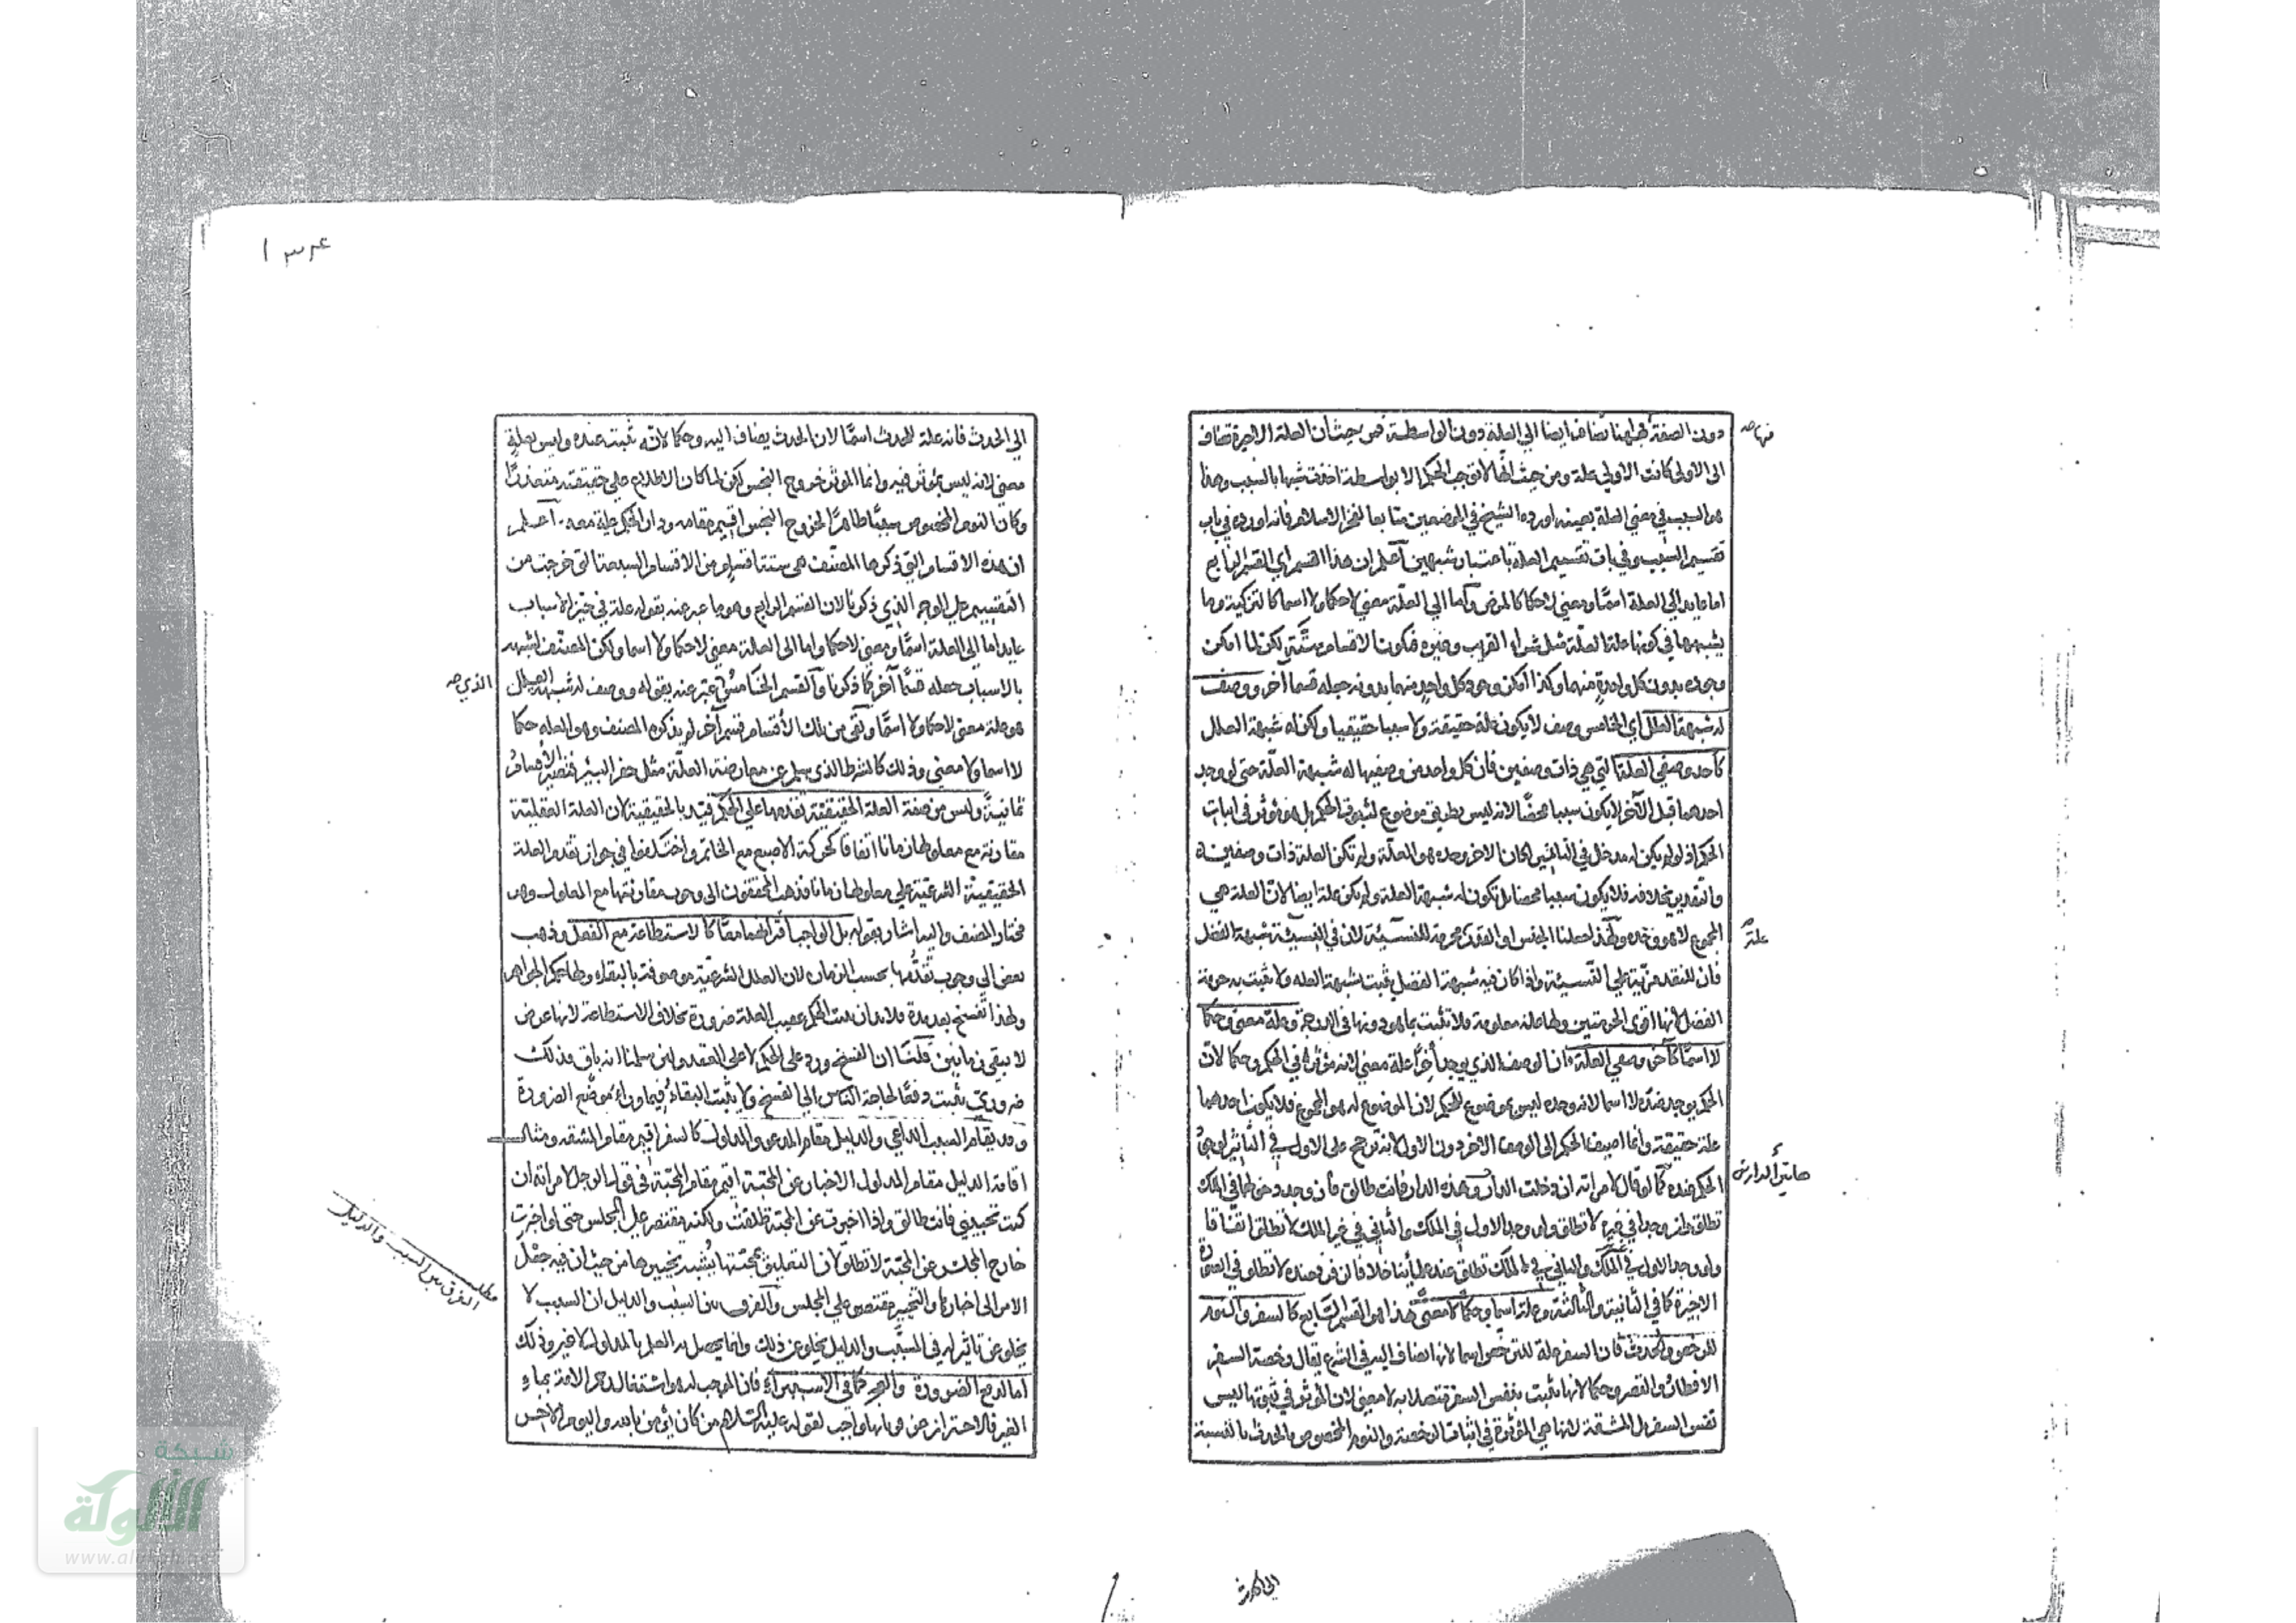 دون الصفة فههنا تضاف ايضا الي العلة دون الواسطة فمن حيث ان العلة الاخيرة تضاف
الى الاولى كانت الاولي علة ومن حيث انها لا توجب الحكم الا بواسطة اخذت شبها بالسبب وهذا
هو السبب في معني العلة بعينه اورده الشيخ في الموضعين متابعا لفخر الاسلام فانه اورده في باب
تقسيم السبب وفي باب تقسيم العلة باعتبار شبهين اعلم ان هذا القسم اي القسم الرابع
اما عايد الي العلة اسمًا ومعني لا حكما كالمرض واما الي العلة معني لا حكما ولا اسما كالتزكية وما
يشبهها في كونها علة العلة مثل شراء القريب وغيره فتكون الاقسام ستة لكن لما امكن
وجوده بدون كل واحدة منهما وكذا امكن وجود كل واحد منهما بدونه جعله قسما اخر ووصف
له شبهة العلل اي الخامس وصف لا يكون علة حقيقة ولا سببا حقيقيا ولكن له شبهة العلل
كاحد وصفي العلة التي هي ذات وصفين فان كل واحد من وصفيها له شبهة العلة حتى لو وجد
احدهما قبل الآخر لا يكون سببا محضًا لانه ليس بطريق موضوع لثبوت الحكم بل هو مؤثر في اثبات
الحكم اذ لو لم يكن له مدخل في التاثير لكان الاخر وحده هو العلة ولم تكن العلة ذات وصفين
والتقدير بخلافه فلا يكون سببا محضا بل تكون له شبهة العلة ولم يكن علة ايضا لان العلة هي
المجموع لا هو وحده ولهذا جعلنا الجنس او القدر محرمة للنسيئة لان في النسيئة شبهة الفضل
فان للنقد مزية علي النسيئة واذا كان فيه شبهة الفضل يثبت بشبهة العلة ولا يثبت به حرمة
الفضل لانها اقوى الحرمتين ولها علة معلومة فلا تثبت بما هو دونها في الدرجة وعلة معنى وحكمًا
لا اسمًا كآخر وصفي العلة فان الوصف الذي يوجد اخرًا علة معني لانه مؤثر في الحكم وحكما لان
الحكم يوجد عنده لا اسما لانه وحده ليس بموضوع للحكم لان الموضوع له هو المجموع فلا يكون احدهما
علة حقيقة وانما اضيف الحكم الى الوصف الاخر دون الاول لانه ترجح على الاول في التأثير لوجود
الحكم عنده كما لو قال لامراته ان دخلت الدار وهذه الدار فانت طالق فان وجد دخولها في الملك
تطلق وان وجدا في غيره لا تطلق وان وجد الاول في الملك والثاني في غير الملك لا تطلق اتفاقا
ولو وجد الاول في غير الملك والثاني في الملك تطلق عند علمائنا خلافا لزفر فعنده لا تطلق في الصورة
الاخيرة كما في الثانية والثالثة وعلة اسما وحكمًا لا معنًى هذا هو القسم السابع كالسفر والنوم
للترخص والحدث فان السفر علة للترخص اسما لانها تضاف اليه في الشرع يقال رخصة السفر
الافطار والقصر وحكما لانها تثبت بنفس السفر متصلا به لا معنى لان المؤثر في ثبوتها ليس
نفس السفر بل المشقة لانها هي المؤثرة في اثبات الرخصة والنوم المخصوص بالحدث بالنسبة
منها صح
علة صح
هاتين الدارين
١٣٤
الي الحدث فانه علة للحدث اسمًا لان الحدث يضاف اليه وحكما لانه يثبت عنده وليس بعلة
معنى لانه ليس بمؤثر فيه وانما المؤثر خروج النجس لكن لما كان الاطلاع على حقيقته متعذرًا
وكان النوم المخصوص سببًا ظاهرًا لخروج النجس اقيم مقامه ودار الحكم علة معه اعلم
ان هذه الاقسام التي ذكرها المصنف هي ستة اقسام من الاقسام السبعة التي خرجت من
التقسيم علي الوجه الذي ذكرنا لان القسم الرابع وهو ما عبر عنه بقوله علة في حيز الاسباب
عايد اما الى العلة اسمًا ومعني لا حكما واما الى العلة معني لا حكما ولا اسما ولكن المصنف لشبهه
بالاسباب جعله قسمًا آخر كما ذكرنا والقسم الخامس عبر عنه بقوله ووصف له شبهة العلل
هو علة معنى لا حكما ولا اسمًا وبقي من تلك الاقسام قسم آخر لم يذكره المصنف وهو العلة حكما
لا اسما ولا معني وذلك كالشرط الذي سلم عن معارضة العلة مثل حفر البئر فتصير الاقسام
ثمانية وليس من صفة العلة الحقيقية تقدمها علي الحكم قيد بالحقيقية لان العلة العقلية
مقارنة مع معلولها زمانا اتفاقا كحركة الاصبع مع الخاتم واختلفوا في جواز تقدم العلة
الحقيقية الشرعية علي معلولها زمانا فذهب المحققون الى وجوب مقارنتها مع المعلول وهو
مختار المصنف واليه اشار بقوله بل الواجب اقترانهما معًا كالاستطاعة مع الفعل وذهب
بعض الي وجوب تقدمها بحسب الزمان لان العلل الشرعية موصوفة بالبقاء ولها حكم الجواهر
ولهذا تفسخ بعد مدة فلا بد ان يثبت الحكم عقيب العلة ضرورة بخلاف الاستطاعة لانها عرض
لا يبقى زمانين قلنا ان الفسخ ورد على الحكم لا على العقد ولئن سلمنا انه باق فذلك
ضروري يثبت دفعًا لحاجة الناس الى الفسخ ولا يثبت البقاء فيما وراء موضع الضرورة
وقد يقام السبب الداعي والدليل مقام المدعو والمدلول كالسفر اقيم مقام المشقة ومثال
اقامة الدليل مقام المدلول الاخبار عن المحبة اقيم مقام المحبة في قول الرجل لامراته ان
كنت تحبيني فانت طالق واذا اخبرت عن المحبة طلقت ولكنه مقتصر علي المجلس حتى لو اخبرت
خارج المجلس عن المحبة لا تطلق لان التعليق بمحبتها يشبه تخييرها من حيث ان فيه جعل
الامر الى اخبارها والتخيير مقتصر علي المجلس والفرق بين السبب والدليل ان السبب لا
يخلو عن تاثير له في المسبَّب والدليل يخلو عن ذلك وانما يحصل به العلم بالمدلول لا غير وذلك
اما لدفع الضرورة والعجز كما في الاستبراء فان الموجب له هو اشتغال رحم الامة بماء
الغير فالاحتراز عنه واجب لقوله عليه السلام من كان يؤمن بالله واليوم الاخر
الذي صح
مطلب
الفرق بين السبب والدليل
شبكة
الألوكة
www.alukah.net